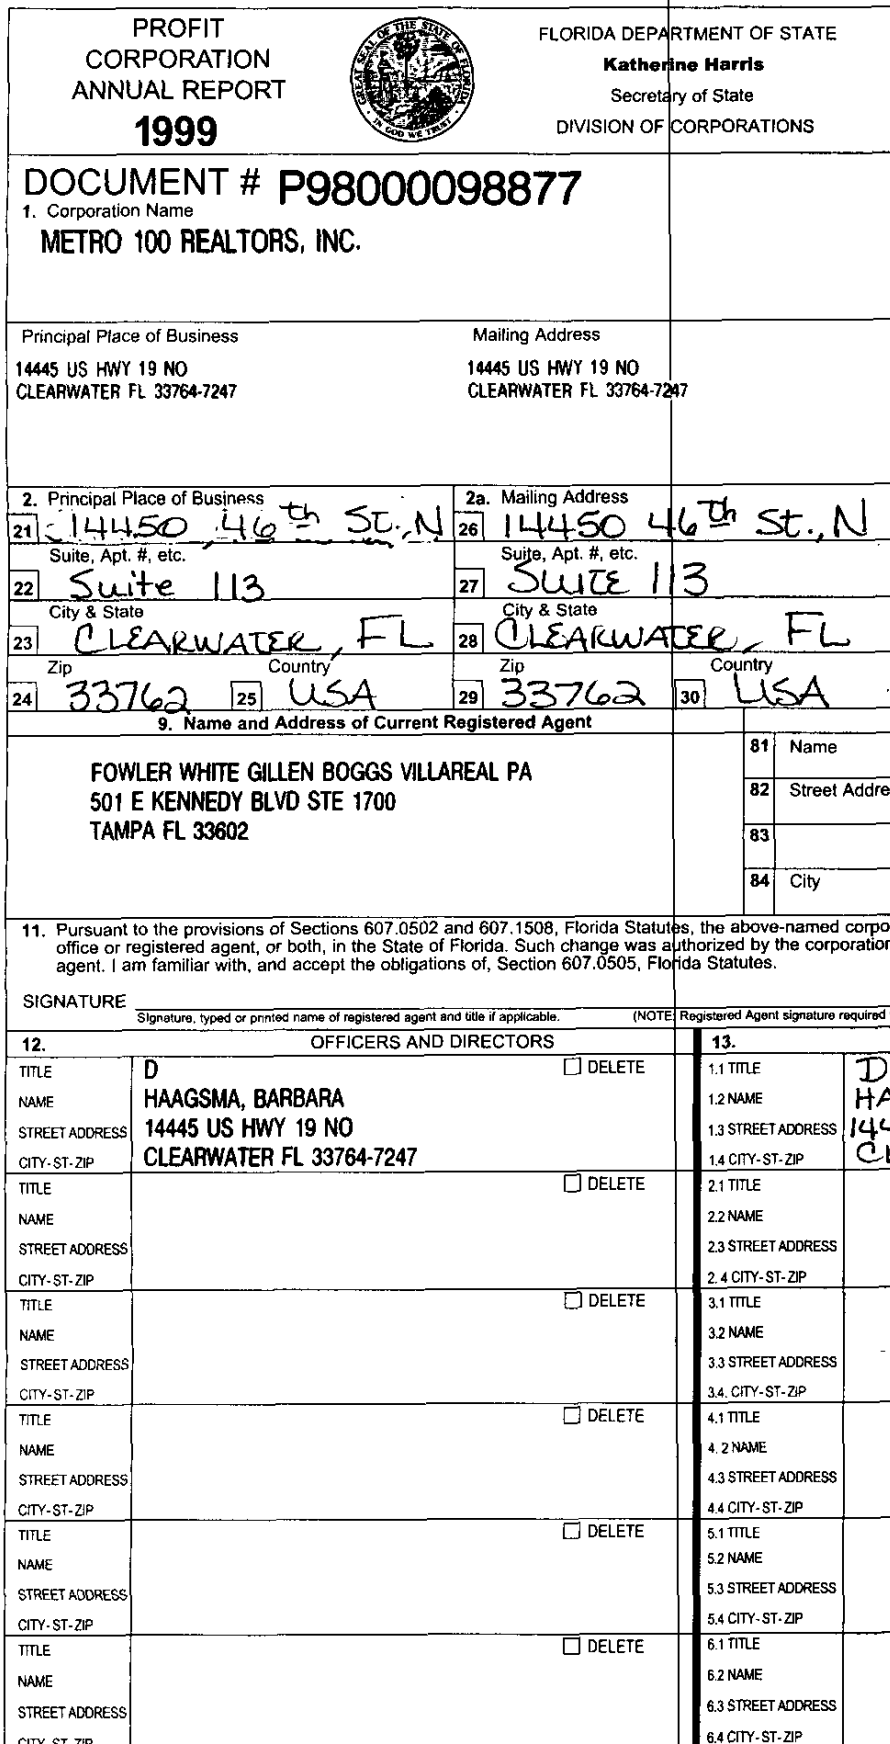 PROFIT
CORPORATION
ANNUAL REPORT
1999
GREAT SEAL OF THE STATE OF FLORIDA
IN GOD WE TRUST
FLORIDA DEPARTMENT OF STATE
Katherine Harris
Secretary of State
DIVISION OF CORPORATIONS
DOCUMENT # P98000098877
1. Corporation Name
METRO 100 REALTORS, INC.
Principal Place of Business
14445 US HWY 19 NO
CLEARWATER FL 33764-7247
Mailing Address
14445 US HWY 19 NO
CLEARWATER FL 33764-7247
2. Principal Place of Business
21 14450 46th St., N
Suite, Apt. #, etc.
22 Suite 113
City & State
23 CLEARWATER, FL
Zip Country
24 33762 25 USA
2a. Mailing Address
26 14450 46th St., N
Suite, Apt. #, etc.
27 SUITE 113
City & State
28 CLEARWATER, FL
Zip Country
29 33762 30 USA
9. Name and Address of Current Registered Agent
FOWLER WHITE GILLEN BOGGS VILLAREAL PA
501 E KENNEDY BLVD STE 1700
TAMPA FL 33602
81 Name
82 Street Addre
83
84 City
11. Pursuant to the provisions of Sections 607.0502 and 607.1508, Florida Statutes, the above-named corpo
office or registered agent, or both, in the State of Florida. Such change was authorized by the corporation
agent. I am familiar with, and accept the obligations of, Section 607.0505, Florida Statutes.
SIGNATURE
Signature, typed or printed name of registered agent and title if applicable. (NOTE: Registered Agent signature required
12. OFFICERS AND DIRECTORS
TITLE D DELETE
NAME HAAGSMA, BARBARA
STREET ADDRESS 14445 US HWY 19 NO
CITY-ST-ZIP CLEARWATER FL 33764-7247
TITLE DELETE
NAME
STREET ADDRESS
CITY-ST-ZIP
TITLE DELETE
NAME
STREET ADDRESS
CITY-ST-ZIP
TITLE DELETE
NAME
STREET ADDRESS
CITY-ST-ZIP
TITLE DELETE
NAME
STREET ADDRESS
CITY-ST-ZIP
TITLE DELETE
NAME
STREET ADDRESS
CITY-ST-ZIP
13.
1.1 TITLE D
1.2 NAME HA
1.3 STREET ADDRESS 144
1.4 CITY-ST-ZIP Cl
2.1 TITLE
2.2 NAME
2.3 STREET ADDRESS
2.4 CITY-ST-ZIP
3.1 TITLE
3.2 NAME
3.3 STREET ADDRESS
3.4. CITY-ST-ZIP
4.1 TITLE
4.2 NAME
4.3 STREET ADDRESS
4.4 CITY-ST-ZIP
5.1 TITLE
5.2 NAME
5.3 STREET ADDRESS
5.4 CITY-ST-ZIP
6.1 TITLE
6.2 NAME
6.3 STREET ADDRESS
6.4 CITY-ST-ZIP